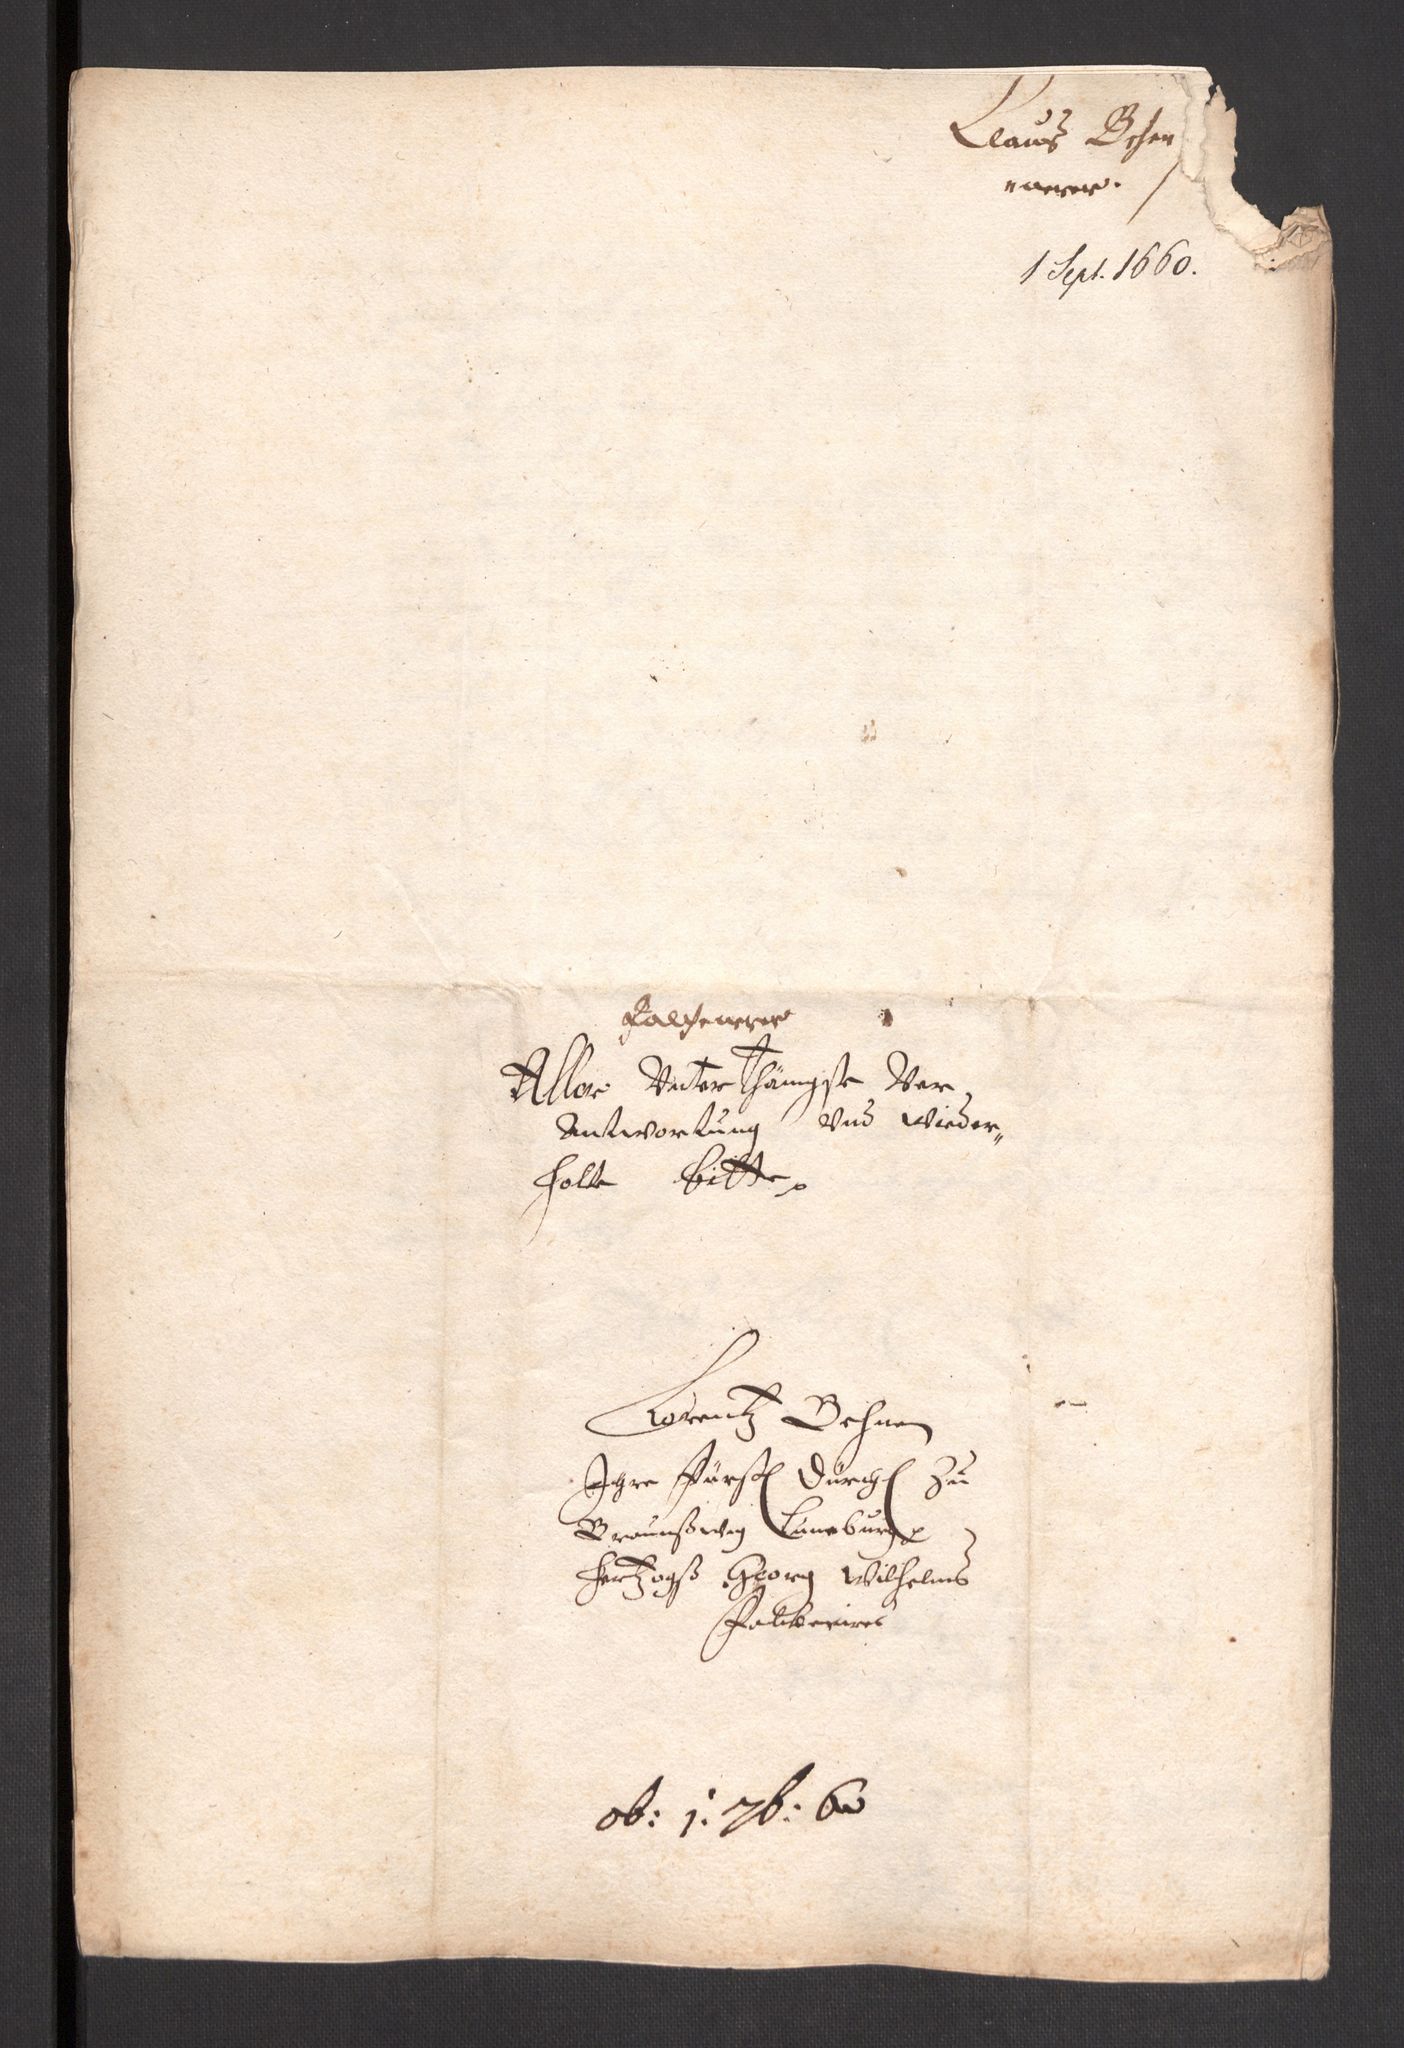 Claus Behen
1 Sept. 1660.
Falkenerer
Aller Unterthänigste Ver,
Antwortung Und Wieder„
holte bitte
Lorentz Behnen
Ihre Fürstl Dürchl Zu
Braunsweig Luneburg
Hertzogß Georg Wilhelms
Falckenires
ob: 1: 7b: 60